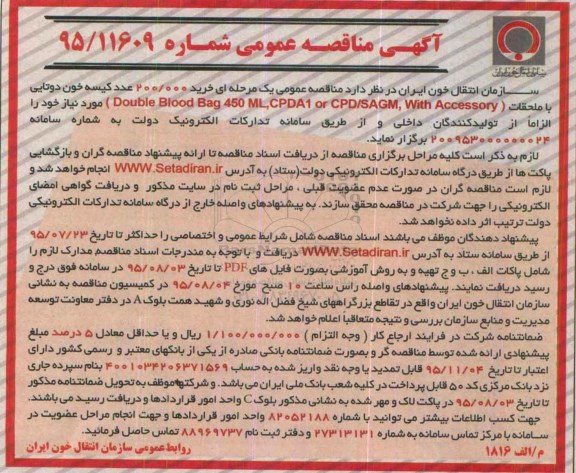 آگهی مناقصه عمومی شماره ۹۵/۱۱۶۰۹
سازمان انتقال خون ایران در نظر دارد مناقصه عمومی یک مرحله ای خرید ۲۰۰/۰۰۰ عدد کیسه خون دوتایی
با ملحقات ( Double Blood Bag 450 ML,CPDA1 or CPD/SAGM, With Accessory ) مورد نیاز خود را
الزاماً از تولیدکنندگان داخلی و از طریق سامانه تدارکات الکترونیکی دولت به شماره سامانه
۲۰۰۹۵۳۰۰۰۰۰۰۰۲۴ برگزار نماید.
لازم به ذکر است کلیه مراحل برگزاری مناقصه از دریافت اسناد مناقصه تا ارائه پیشنهاد مناقصه گران و بازگشایی
پاکت ها از طریق درگاه سامانه تدارکات الکترونیکی دولت(ستاد) به آدرس WWW.Setadiran.ir انجام خواهد شد و
لازم است مناقصه گران در صورت عدم عضویت قبلی ، مراحل ثبت نام در سایت مذکور و دریافت گواهی امضای
الکترونیکی را جهت شرکت در مناقصه محقق سازند. به پیشنهادهای واصله خارج از درگاه سامانه تدارکات الکترونیکی
دولت ترتیب اثر داده نخواهد شد.
پیشنهاد دهندگان موظف می باشند اسناد مناقصه شامل شرایط عمومی و اختصاصی را حداکثر تا تاریخ ۹۵/۰۷/۲۳
از طریق سامانه ستاد به آدرس WWW.Setadiran.ir دریافت و با توجه به مندرجات اسناد مناقصه مدارک لازم را
شامل پاکات الف ، ب و ج تهیه و به روش آموزشی بصورت فایل های PDF تا تاریخ ۹۵/۰۸/۰۳ در سامانه فوق درج و
رسید دریافت نمایند. پیشنهادهای واصله راس ساعت ۱۰ صبح مورخ ۹۵/۰۸/۰۴ در کمیسیون مناقصه به نشانی
سازمان انتقال خون ایران واقع در تقاطع بزرگراههای شیخ فضل اله نوری و شهید همت بلوک A در دفتر معاونت توسعه
مدیریت و منابع سازمان بررسی و نتیجه متعاقباً اعلام خواهد شد.
ضمانتنامه شرکت در فرایند ارجاع کار ( وجه التزام ) ۱/۱۰۰/۰۰۰/۰۰۰ ریال و یا حداقل معادل ۵ درصد مبلغ
پیشنهادی ارائه شده توسط مناقصه گر و بصورت ضمانتنامه بانکی صادره از یکی از بانکهای معتبر و رسمی کشور دارای
اعتبار تا تاریخ ۹۵/۱۱/۰۴ قابل تمدید یا وجه نقد واریز شده به حساب ۴۰۰۱۰۳۴۲۰۶۳۷۱۵۶۹ بنام سپرده جاری
نزد بانک مرکزی کد ۵۰ قابل پرداخت در کلیه شعب بانک ملی ایران می باشد. و شرکتها موظف به تحویل ضمانتنامه مذکور
تا تاریخ ۹۵/۰۸/۰۳ در پاکت لاک و مهر شده به نشانی مذکور بلوک C واحد امور قراردادها و دریافت رسید می باشند.
جهت کسب اطلاعات بیشتر می توانید با شماره ۸۲۰۵۲۱۸۸ واحد امور قراردادها و جهت انجام مراحل عضویت در
سامانه با مرکز تماس سامانه به شماره ۲۷۳۱۳۱۳۱ و دفتر ثبت نام ۸۸۹۶۹۷۳۷ تماس حاصل فرمائید.
م/الف ۱۸۱۶
روابط عمومی سازمان انتقال خون ایران